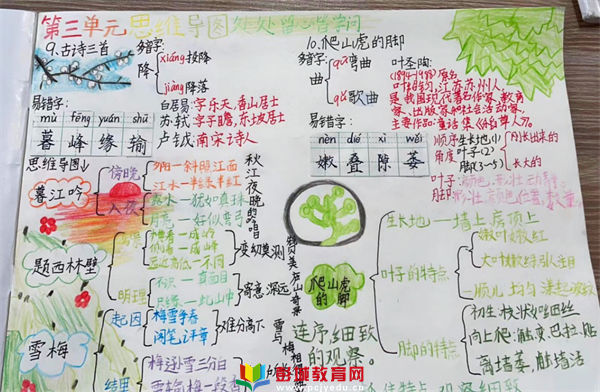 第三单元思维导图处处留心皆学问
9.古诗三首
多音字:
降
xiáng投降
jiàng降落
易错字:
mù fēng yuán shū
暮 峰 缘 输
白居易:字乐天,香山居士
苏轼:字子瞻,东坡居士
卢钺:南宋诗人
思维导图↓
暮江吟
傍晚
夕阳一斜照江西
江水一半绿半红
入夜
露水一犹如真珠
月亮一好似弯弓
秋江夜晚的
题西林壁
横看一成岭
侧看一成峰
远近高低一不同
变幻莫测
明理
不识一真面目
只缘一此山中
寄意深远
雪梅
起因
梅雪争春
阁笔评章
难分高下
结果
梅逊雪三分白
雪输梅一段香
10.爬山虎的脚
多音字:
曲
qū弯曲
qǔ歌曲
易错字:
nèn dié xì wěi
嫩 叠 隙 萎
叶圣陶:
(1894-1988)原名
叶绍钧,江苏苏州人,
是我国现代著名作家、教育
家、出版家和社会活动家。
主要作品:童话集《稻草人》
顺序
角度
生长地(1)
叶子(2)
脚(3~5)
刚长出来的
长大的
叶子:
脚:
爬山虎
的脚
生长地一墙上房顶上
叶子的特点
嫩叶嫩红
大叶嫩绿引注目
一顺儿
脚的特点
初生:枝状的细丝
向上爬:触、变、巴、拉、贴
离墙萎,触墙活
连续细致
的观察。
中教教育网
www.pcjyedu.cn